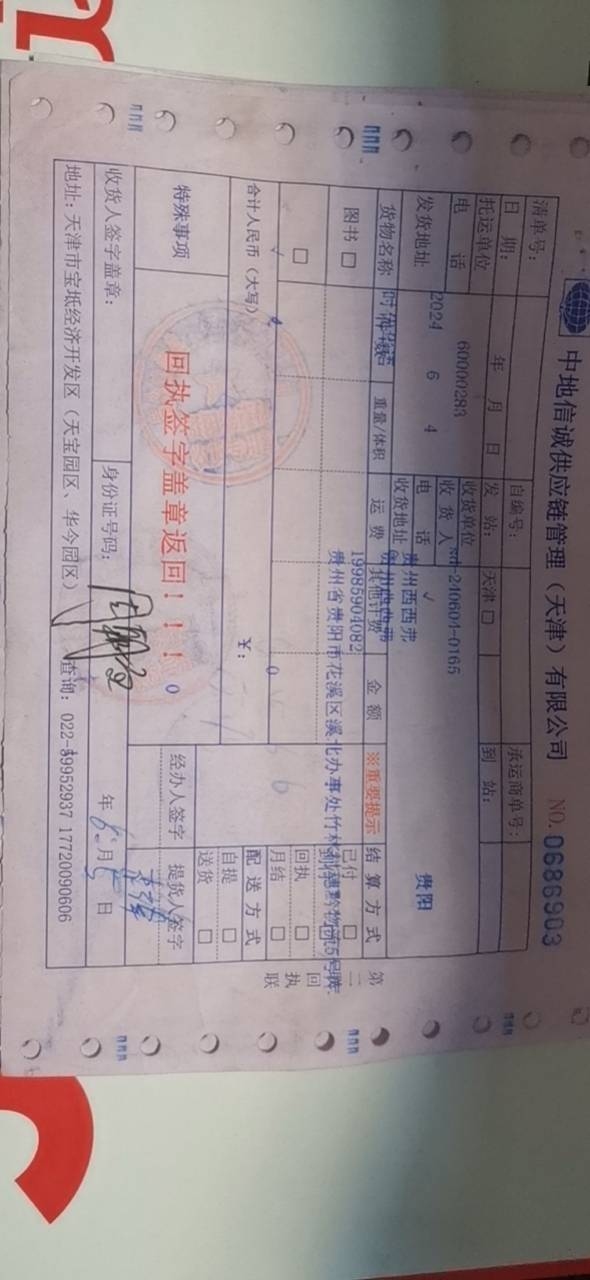 中地信诚供应链管理（天津）有限公司 NO. 0686903
清单号： 自编号： 承运商单号：
日 期： 年 月 日 发 站： 天津 □ 到 站：
2024 6 4
托运单位 收货单位
60000283 240601-0165
贵阳
电 话 收 货 人
贵州西西弗
发货地址 电 话 收货地址
19985904082
贵州省贵阳市花溪区溪北办事处竹林
货物名称 件数 重量/体积 运 费 其他计费 金 额 ※重要提示 结 算 方 式
图书 □ 已付 □
□ 回执 □
月结 □
合计人民币（大写） ¥： 配 送 方 式
自提 □
送货 □
特殊事项 回执签字盖章返回！！！ 经办人签字 提货人签字
收货人签字盖章： 身份证号码： 年 6 月 5 日
地址：天津市宝坻经济开发区（天宝园区、华今园区） 查询：022-59952937 17720090606
第二联 回执